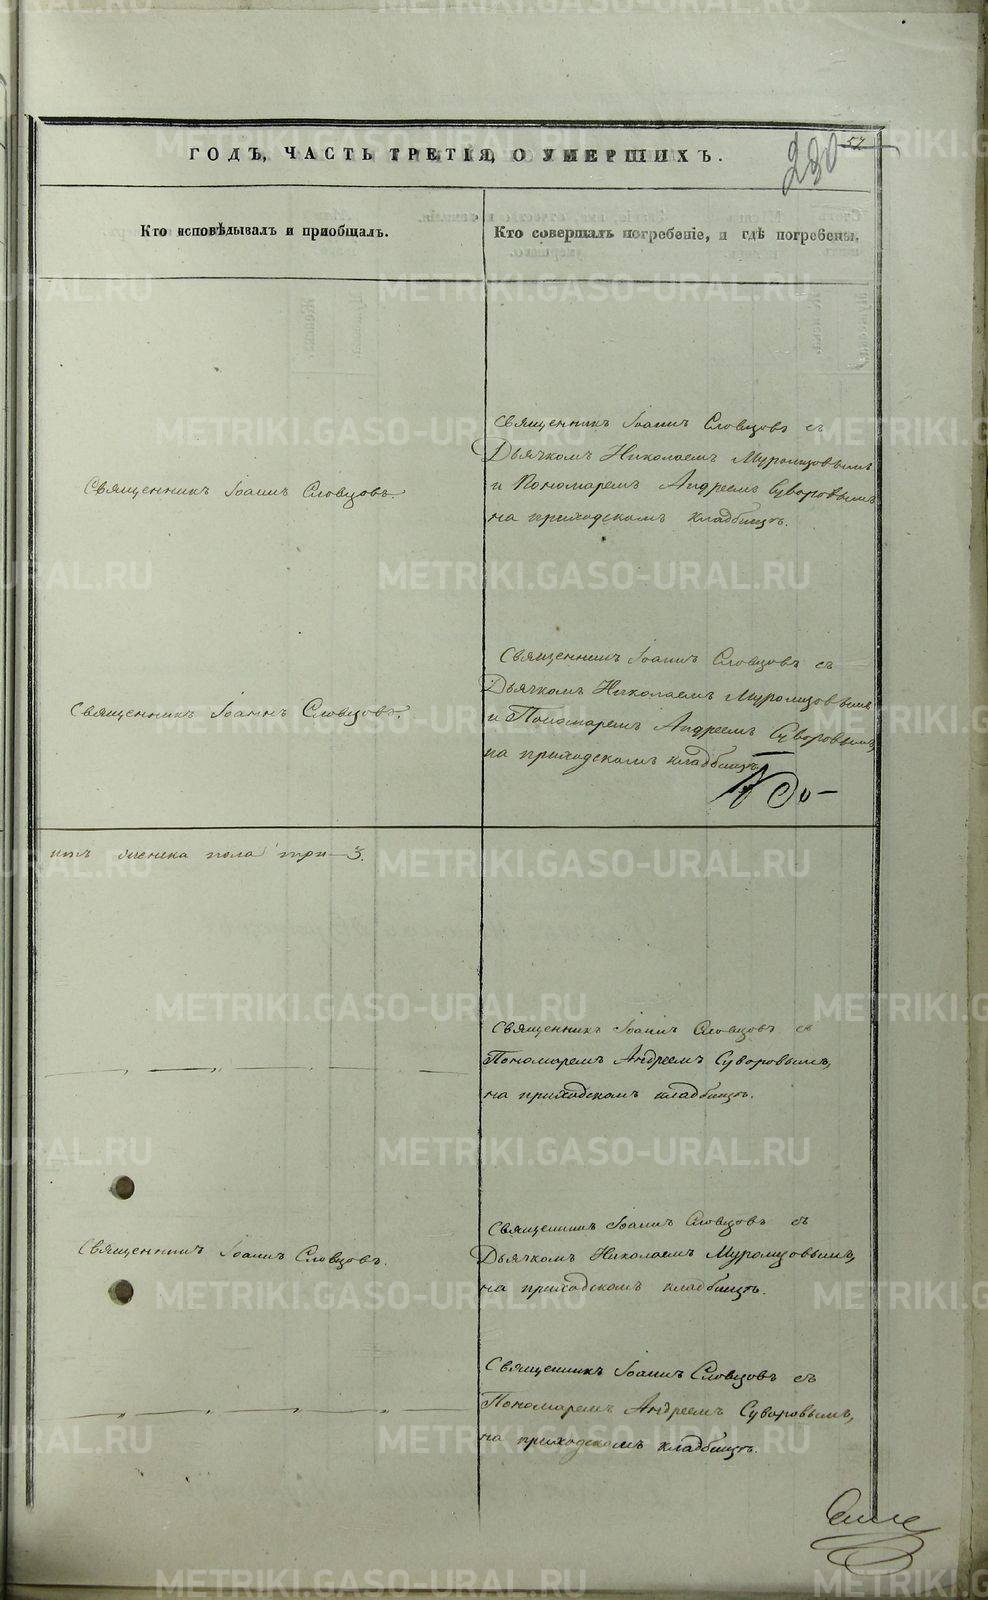 ГОДЪ, ЧАСТЬ ТРЕТІЯ, О УМЕРШИХЪ.
230
57
Кто исповѣдывалъ и пріобщалъ.
Кто совершалъ погребеніе, и гдѣ погребены.
Священникъ Іоаннъ Словцовъ.
Священникъ Іоаннъ Словцовъ съ
Дьячкомъ Николаемъ Муромцовымъ
и Пономаремъ Андреемъ Суворовымъ
на приходскомъ кладбищѣ.
Священникъ Іоаннъ Словцовъ.
Священникъ Іоаннъ Словцовъ съ
Дьячкомъ Николаемъ Муромцовымъ
и Пономаремъ Андреемъ Суворовымъ
на приходскомъ кладбищѣ.
женска пола три — 3.
Священникъ Іоаннъ Словцовъ съ
Пономаремъ Андреемъ Суворовымъ,
на приходскомъ кладбищѣ.
Священникъ Іоаннъ Словцовъ.
Священникъ Іоаннъ Словцовъ съ
Дьячкомъ Николаемъ Муромцовымъ,
на приходскомъ кладбищѣ.
Священникъ Іоаннъ Словцовъ съ
Пономаремъ Андреемъ Суворовымъ,
на приходскомъ кладбищѣ.
METRIKI.GASO-URAL.RU